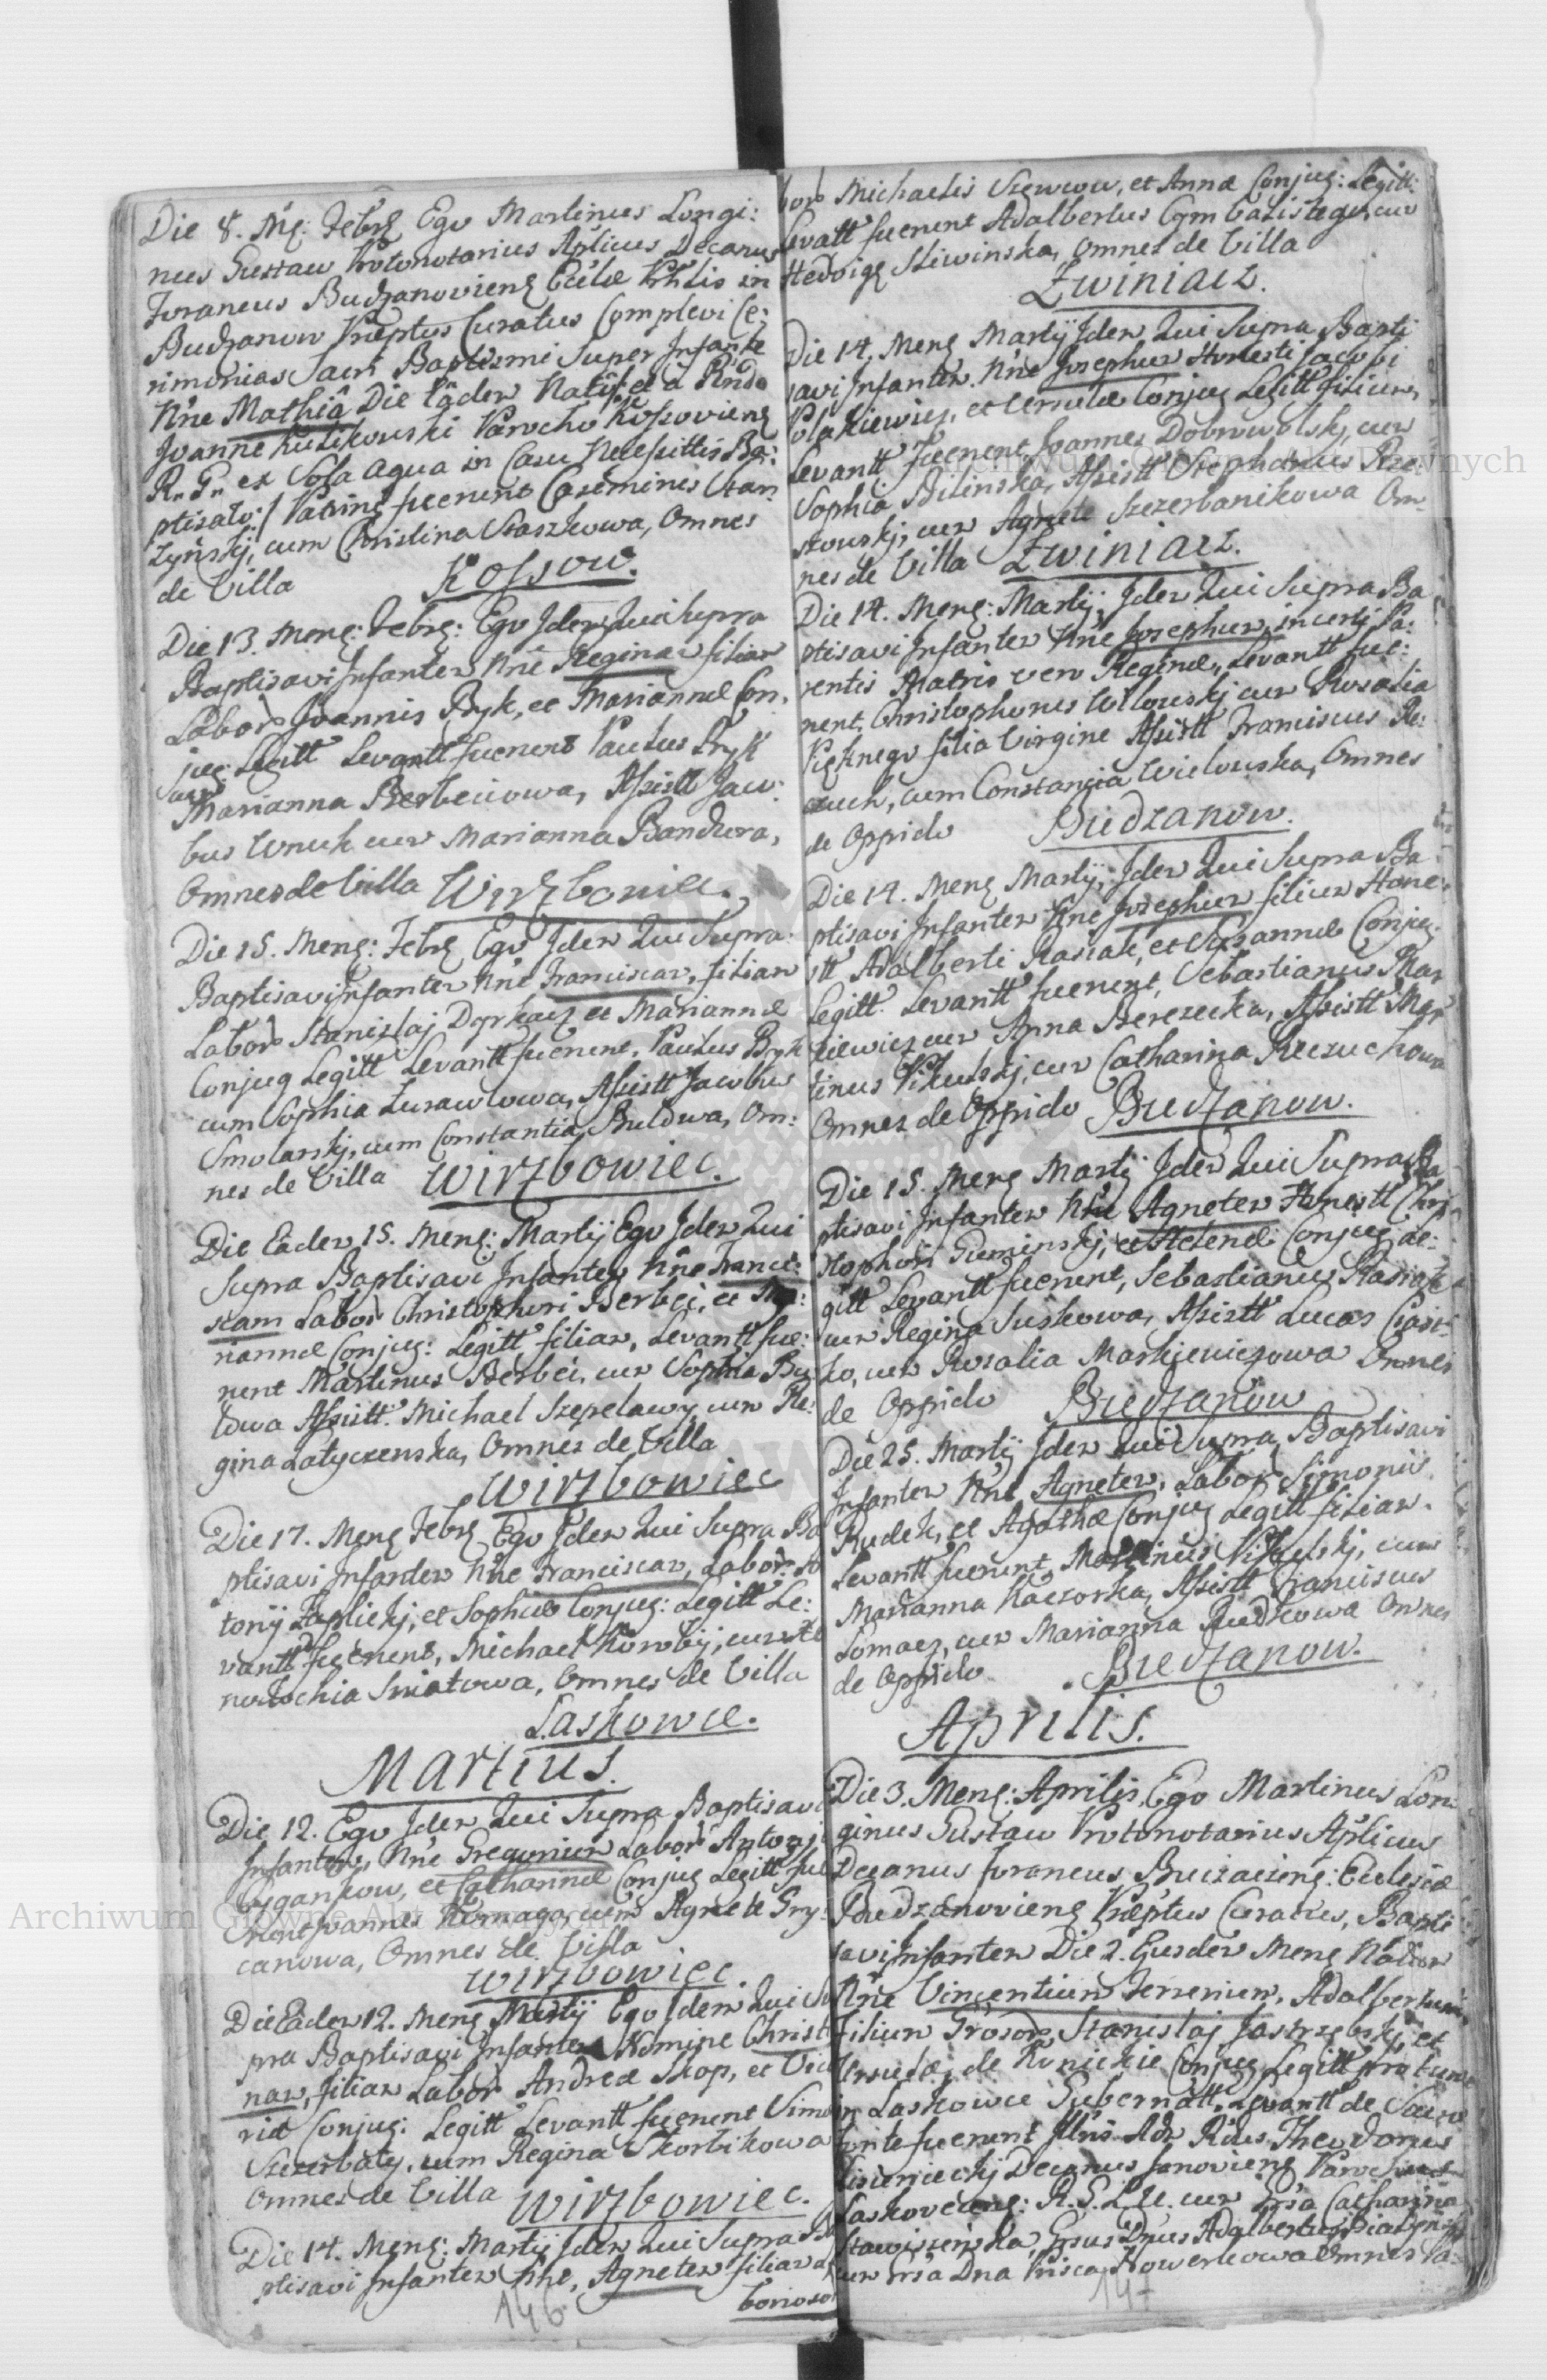 Die 8. Mē: Febrȝ Ego Martinus Longi:
nus Gustaw Protonotarius Aplicus Decanus
Foraneus Budzanovienȝ Ecclæ Prhlis in
Budzanow Præptus Curatus Complevi Ce:
rimonias Sacri Baptismi Super Infante
Nne Mathiâ Die Eâdem
Joanne Kulikowski Parocho Kossovienȝ
R. G. ex Sola aqua in Casu Necessittis Ba:
ptisato:/ Patrini fuerunt Casimirus Stan
zyński, cum Christina Staszkowa, Omnes
de Villa Kossow.
Die 13. Menȝ: Febrȝ: Ego Idem Qui Supra
Baptisavi Infantem Nne Reginam filiam
Labor Joannis Bryk, et Mariannæ Con.
jug: Legitt Levantt fuerunt Paulus Bryk
cum
Marianna Berbeciowa, Assistt Jaco:
bus Wnuk cum Marianna Bandura,
Omnes de Villa Wirzbowiec.
Die 15. Menȝ: Febrȝ Ego Idem Qui Supra
Baptisavi Infantem Nne Franciscam, filiam
Labor Stanislaj Dyrkacz et Mariannæ
Conjug Legitt Levantt fuerunt. Paulus Bryk
cum Sophia Zurawlowa, Assistt Jacobus
Smolarskj, cum Constantia Buldwa, Om:
nes de Villa Wirzbowiec.
Die Eadem 15. Menȝ: Martij Ego Idem Qui
Supra Baptisavi Infantem Nne Franci:
scam Labor Christophori Berbeć, et Ma:
riannæ Conjug: Legitt filiam, Levantt fue:
runt Martinus Berbeć, cum Sophia Bu
ldwa Assistt. Michael Szepelawy cum Re:
gina Latyczenska, Omnes de Villa
Wirzbowiec
Die 17. Menȝ Febrȝ Ego Idem Qui Supra Ba
ptisavi Infantem Nne Franciscam, Labor: An
tonij Zaplickj, et Sophiæ Conjug: Legitt Le:
vantt fuerunt, Michael cum
Sniatowa, Omnes de Villa
Laskowce.
Martius.
Die 12. Ego Idem Qui Supra Baptisavi
Infantem, Nne Gregorium Labor Antonj
Cygankow, et Catharinæ Conjug Legitt fue
runt Joannes Romaga, cum Agnete Gry:
canowa, Omnes de Villa
Wirzbowiec.
Die Eadem 12. Menȝ Martij Ego Idem Qui Su
pra Baptisavi Infantem Nomine Christi
nam, filiam Labor Andreæ Skop, et
Conjug: Legitt Levantt fuerunt Simon
Szczerbaty, cum Regina Skorbikowa
Omnes de Villa Wirzbowiec.
Die 14. Menȝ: Martij Idem Qui Supra Ba
ptisavi Infantem Nne, Agnetem filiam La
borioso
146
bor Michaelis Szewcow, et Annæ Conjug: Legitt:
Levatt fuerunt Adalbertus Cymbalistego, cum
Hedvige Sliwinska, Omnes de Villa
Zwiniacz.
Die 14. Menȝ Martij Idem Qui Supra Bapti
savi Infantem. Nne Josephum Honesti Jacobi
Polakiewicz, et Ursulæ Conjug Legitt filium,
Levantt. fuerunt Joannes Dobrowolskj, cum
Sophia Bilinska, Assistt Stephanus Rze
szowskj, cum Agnete Szczerbanikowa Om
nes de Villa Zwiniacz.
Die 14. Menȝ: Martij, Idem Qui Supra Ba
ptisavi Infantem Nne Josephum, incerti Pa:
rentis Matris vero Reginæ, Levantt fue:
runt. Christophorus cum Rosalia
Pięknego filia Virgine Assistt Franciscus Re:
czuch, cum Constancia Wielowska, Omnes
de Oppido Budzanow.
Die 14. Menȝ Martij, Idem Qui Supra Ba
ptisavi Infantem Nne Josephum filium Hone:
stt Adalberti Rasiak, et Susannæ Conjug.
Legitt. Levantt fuerunt, Sebastianus Mar
kiewicz cum Anna Berezecka, Assistt Mar
tinus Pikulskj, cum Catharina Reczuchowa
Omnes de Oppido Budzanow.
Die 15. Menȝ Martij Idem Qui Supra Ba
ptisavi Infantem Nne Agnetem Honestt Chri
stophori Guminskj, et Helenæ Conjug Le:
gitt Levantt fuerunt, Sebastianus Rasiak
cum Regina Suskowa, Assistt Lucas
ko, cum Rosalia Markiewiczowa Omnes
de Oppido Budzanow
Die 25. Martij Idem Qui Supra Baptisavi
Infantem Nne Agnetem, Labor Simonis
Rudek, et Agathæ Conjug Legitt filiam.
Levantt fuerunt Martinus Pikulskj, cum
Marianna Kaczorka, Assistt Franciscus
Lomacz, cum Marianna Rudkowa Omnes
de Oppido Budzanow.
Aprilis.
Die 3. Menȝ: Aprilis, Ego Martinus Lon:
ginus Gustaw Protonotarius Aplicus
Decanus foraneus, Buczaczenȝ: Ecclesiæ
Budzanovienȝ Præptus Curatus, Bapti
savi Infantem Die 2. Ejusdem Menȝ Natum
Nne Vincentium Ferrerium, Adalbertum,
filium Grosor Stanislaj Jastrzebskj et
Ursulæ, de Kunickie Conjug Legitt pro tunc
in Laskowce Gubernatt. Levantt de Sacro
fonte fuerunt Illris Adm Rdus Theodorus
Lisienieckj Decanus Janovienȝ Parochus
Laskovecenȝ: R. G. L. U. cum Grsa Catharina
Stawiszenska, Grsus Dnus Adalbertus
cum Grsa Dna Prisca Howerkowa Omnes
147
Archiwum Główne Akt Dawnych
Archiwum Główne Akt Dawnych